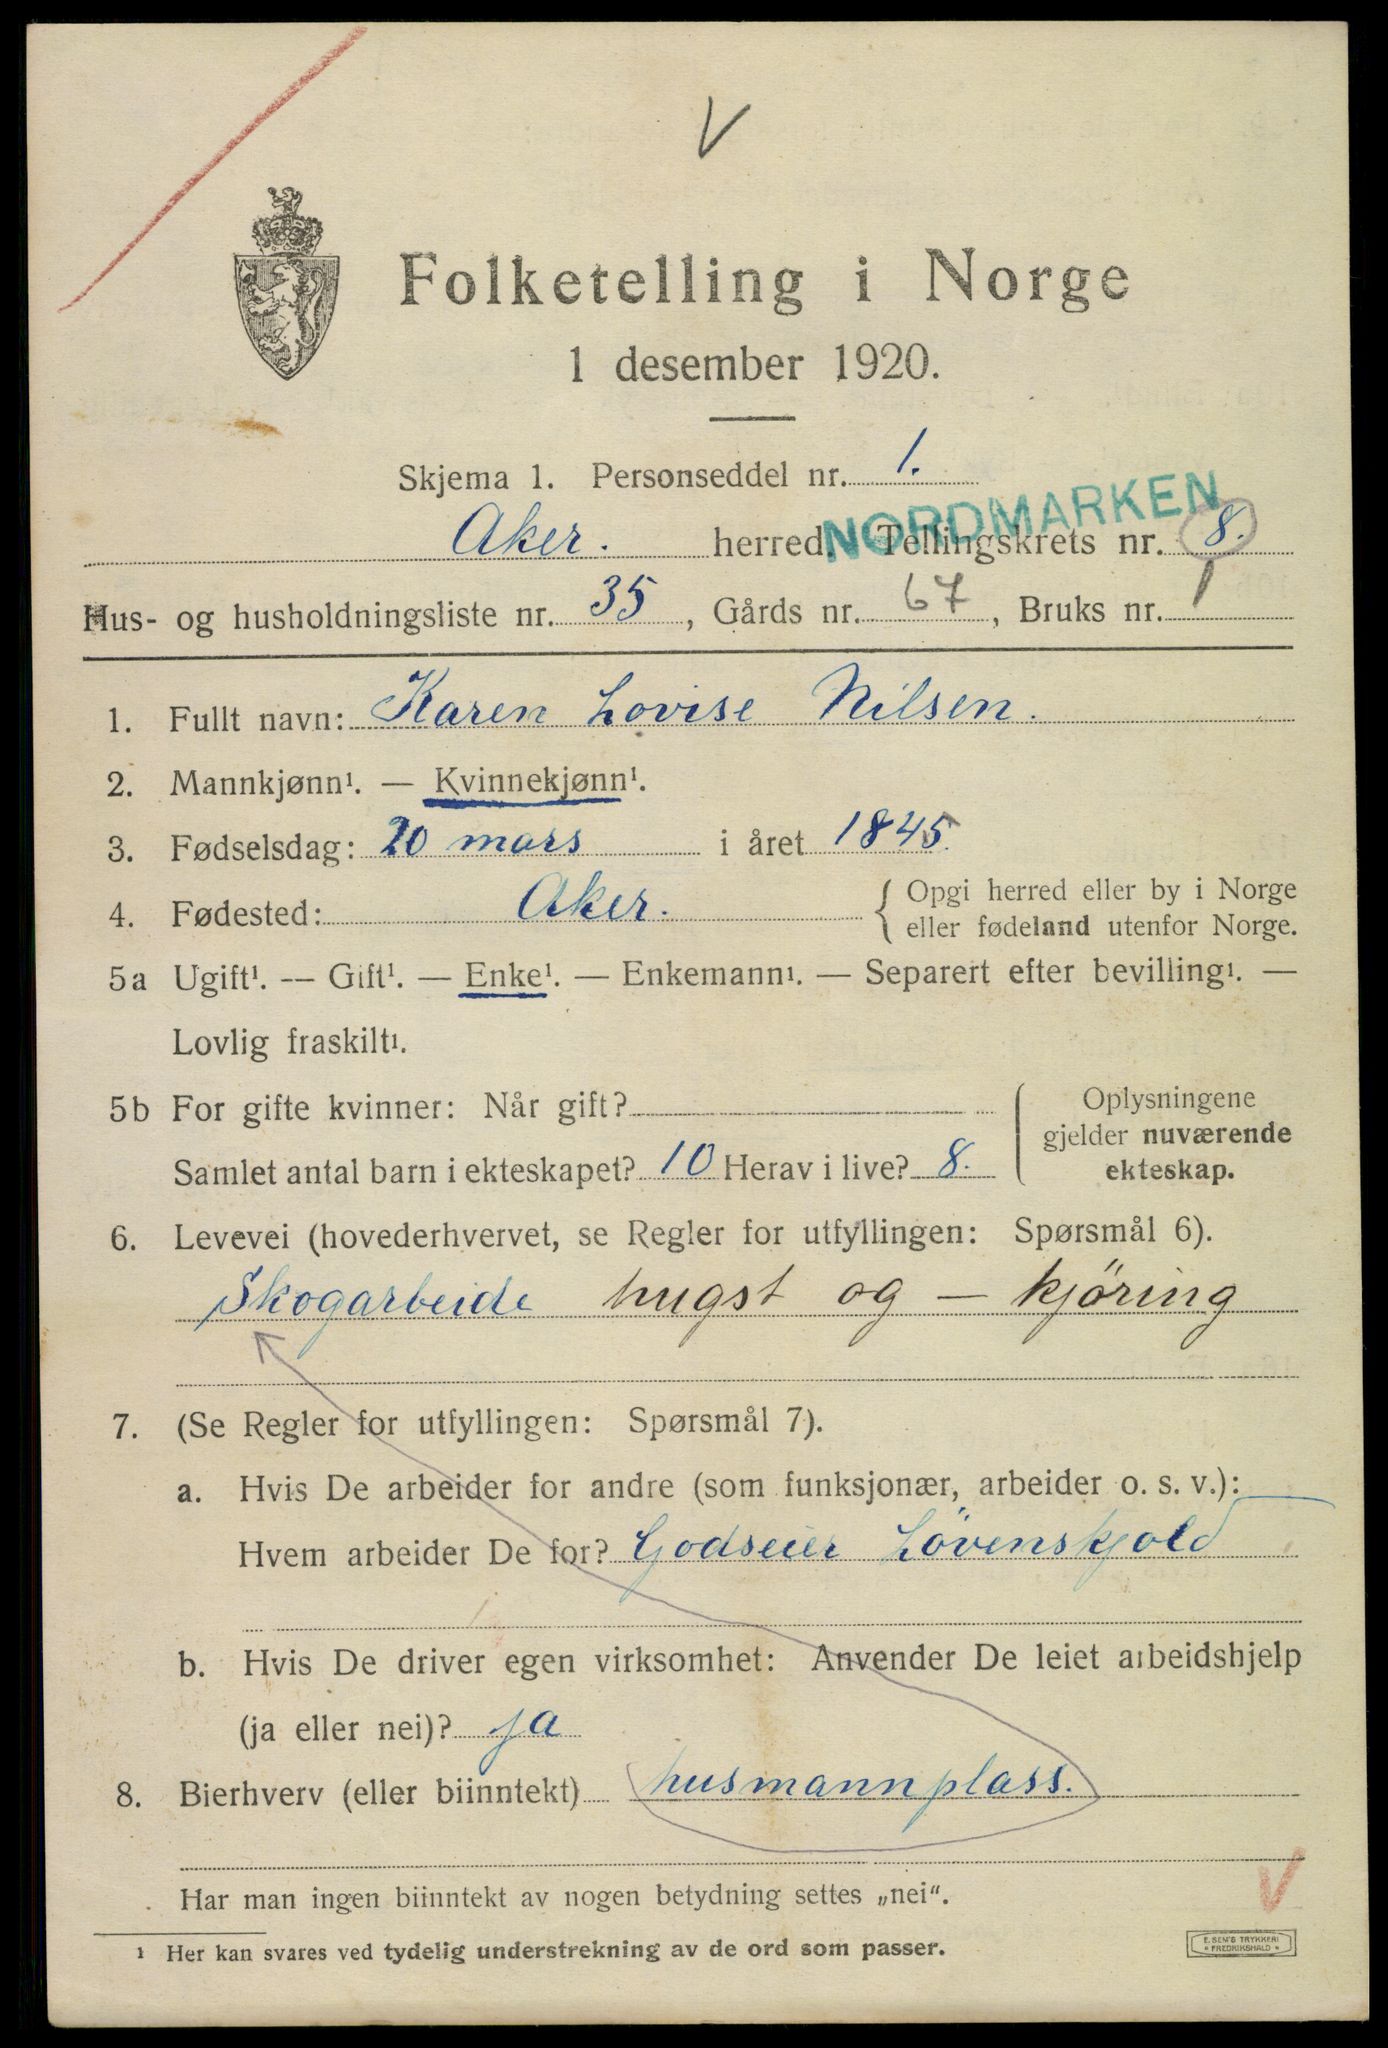 V
Folketelling i Norge
1 desember 1920.
Skjema 1. Personseddel nr. 1.
NORDMARKEN
Aker. herred. Tellingskrets nr. 8.
Hus- og husholdningsliste nr. 35, Gårds nr. 67, Bruks nr. 1
1. Fullt navn: Karen Lovise Nilsen.
2. Mannkjønn¹. — Kvinnekjønn¹.
3. Fødselsdag: 20 mars i året 1845.
4. Fødested: Aker. { Opgi herred eller by i Norge
eller fødeland utenfor Norge.
5a Ugift¹. — Gift¹. — Enke¹. — Enkemann¹. — Separert efter bevilling¹. —
Lovlig fraskilt¹.
5b For gifte kvinner: Når gift?
Samlet antal barn i ekteskapet? 10 Herav i live? 8.
Oplysningene
gjelder nuværende
ekteskap.
6. Levevei (hovederhvervet, se Regler for utfyllingen: Spørsmål 6).
Skogarbeide hugst og — kjöring
7. (Se Regler for utfyllingen: Spørsmål 7).
a. Hvis De arbeider for andre (som funksjonær, arbeider o. s. v.):
Hvem arbeider De for? Godseier Lövenskjold
b. Hvis De driver egen virksomhet: Anvender De leiet arbeidshjelp
(ja eller nei)? ja
8. Bierhverv (eller biinntekt) husmannplass.
Har man ingen biinntekt av nogen betydning settes „nei“.
V
¹ Her kan svares ved tydelig understrekning av de ord som passer.
E. SEM'S TRYKKERI
* FREDRIKSHALD *